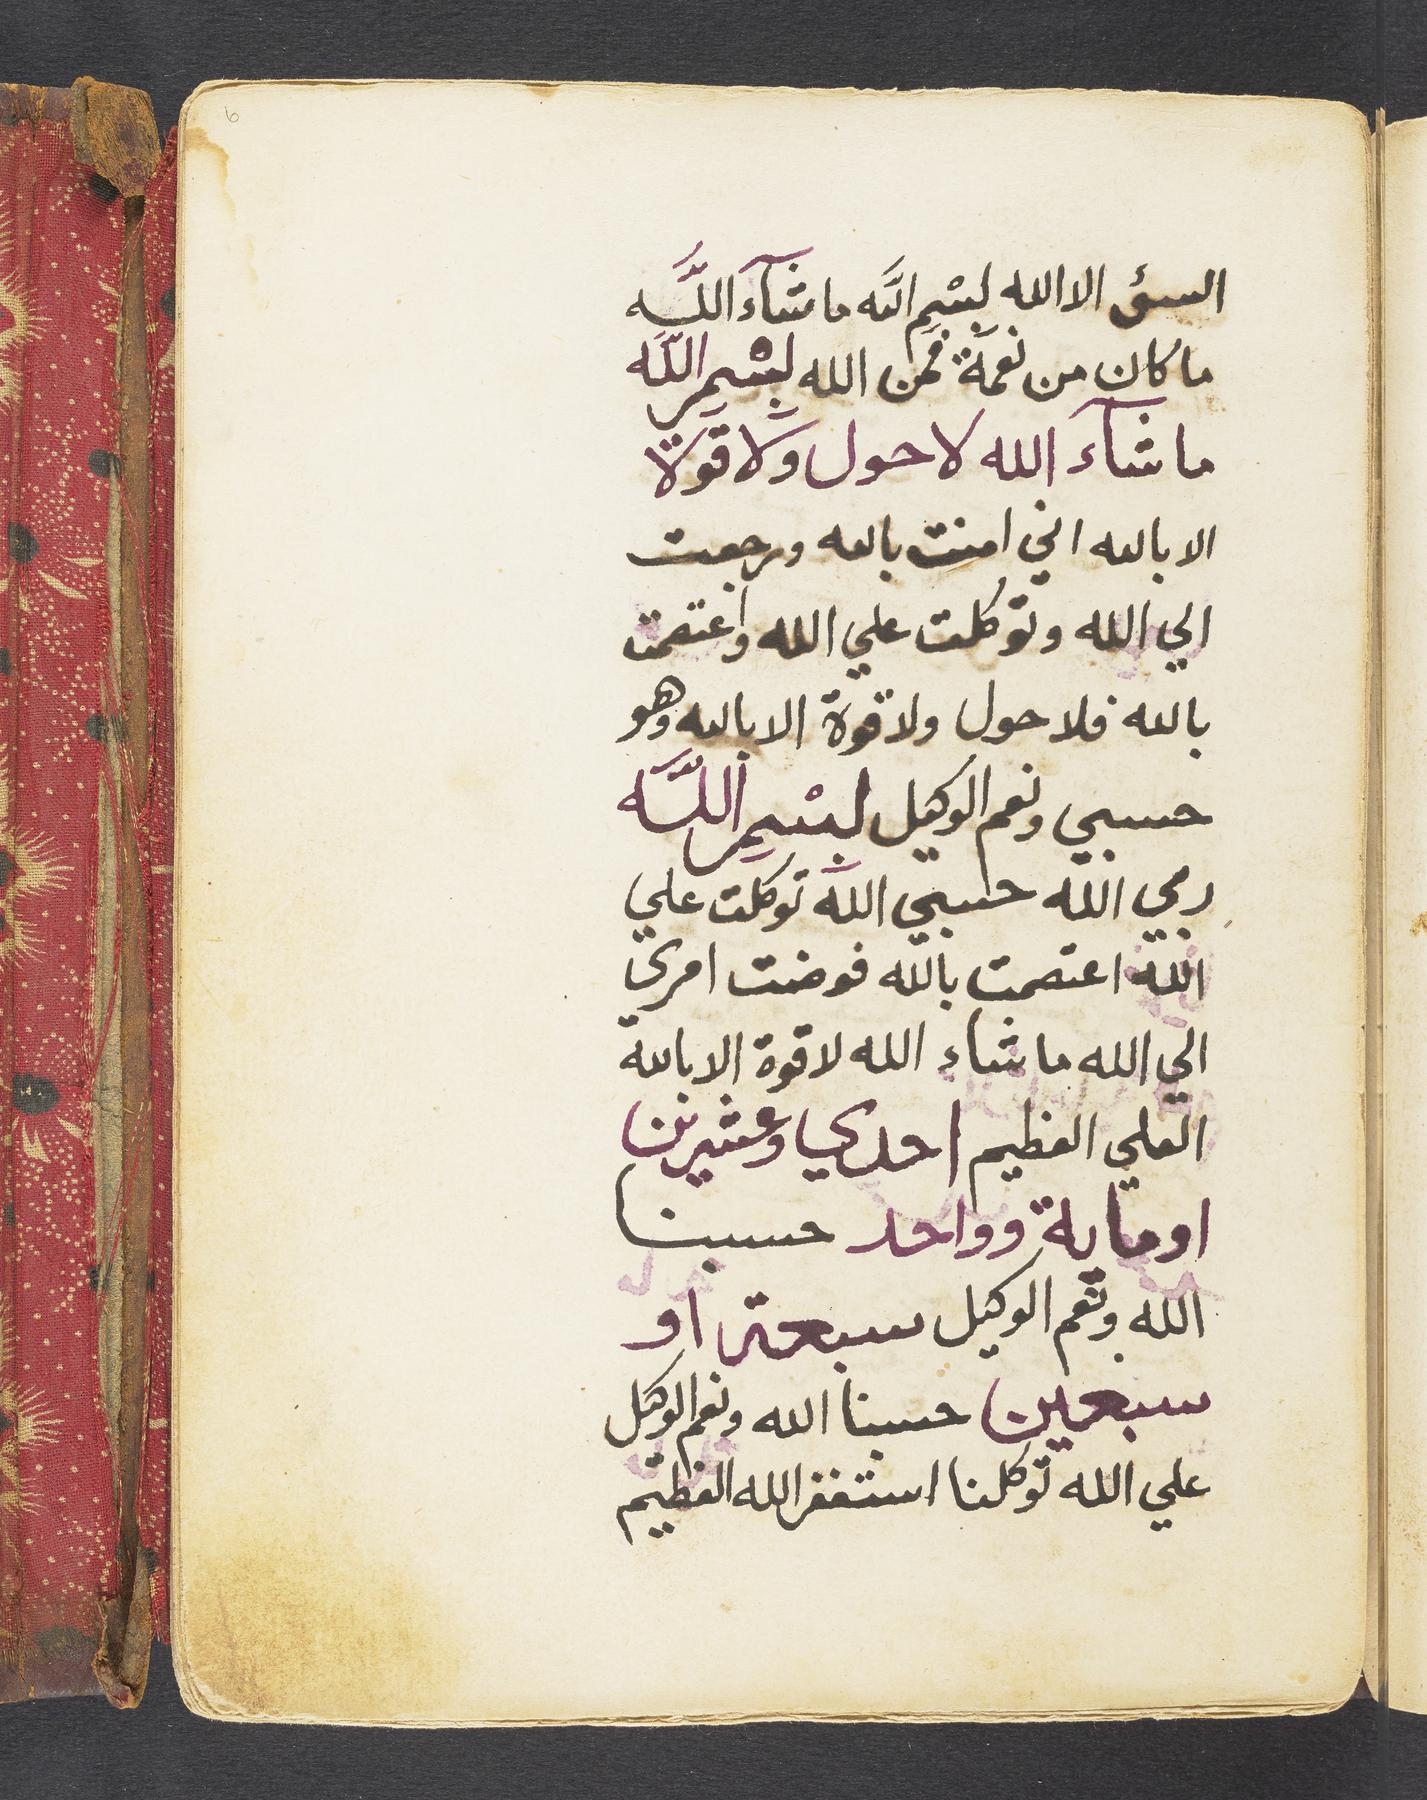 6
السوئ الا الله بِسْمِ اللَّه ما شآء اللَّه
ما كان من نعمة فمن الله بِسْمِ اللَّه
ما شآء الله لا حول ولا قوة
الا بالله اني امنت بالله ورجعت
الي الله وتوكلت علي الله واعتصمت
بالله فلا حول ولا قوة الا بالله وهو
حسبي ونعم الوكيل بِسْمِ اللَّه
ربي الله حسبي الله توكلت علي
الله اعتصمت بالله فوضت امري
الي الله ما شاء الله لا قوة الا بالله
العلي العظيم احدي وعشرين
او ماية وواحد حسبنا
الله ونعم الوكيل سبعة او
سبعين حسبنا الله ونعم الوكيل
علي الله توكلنا استغفر الله العظيم